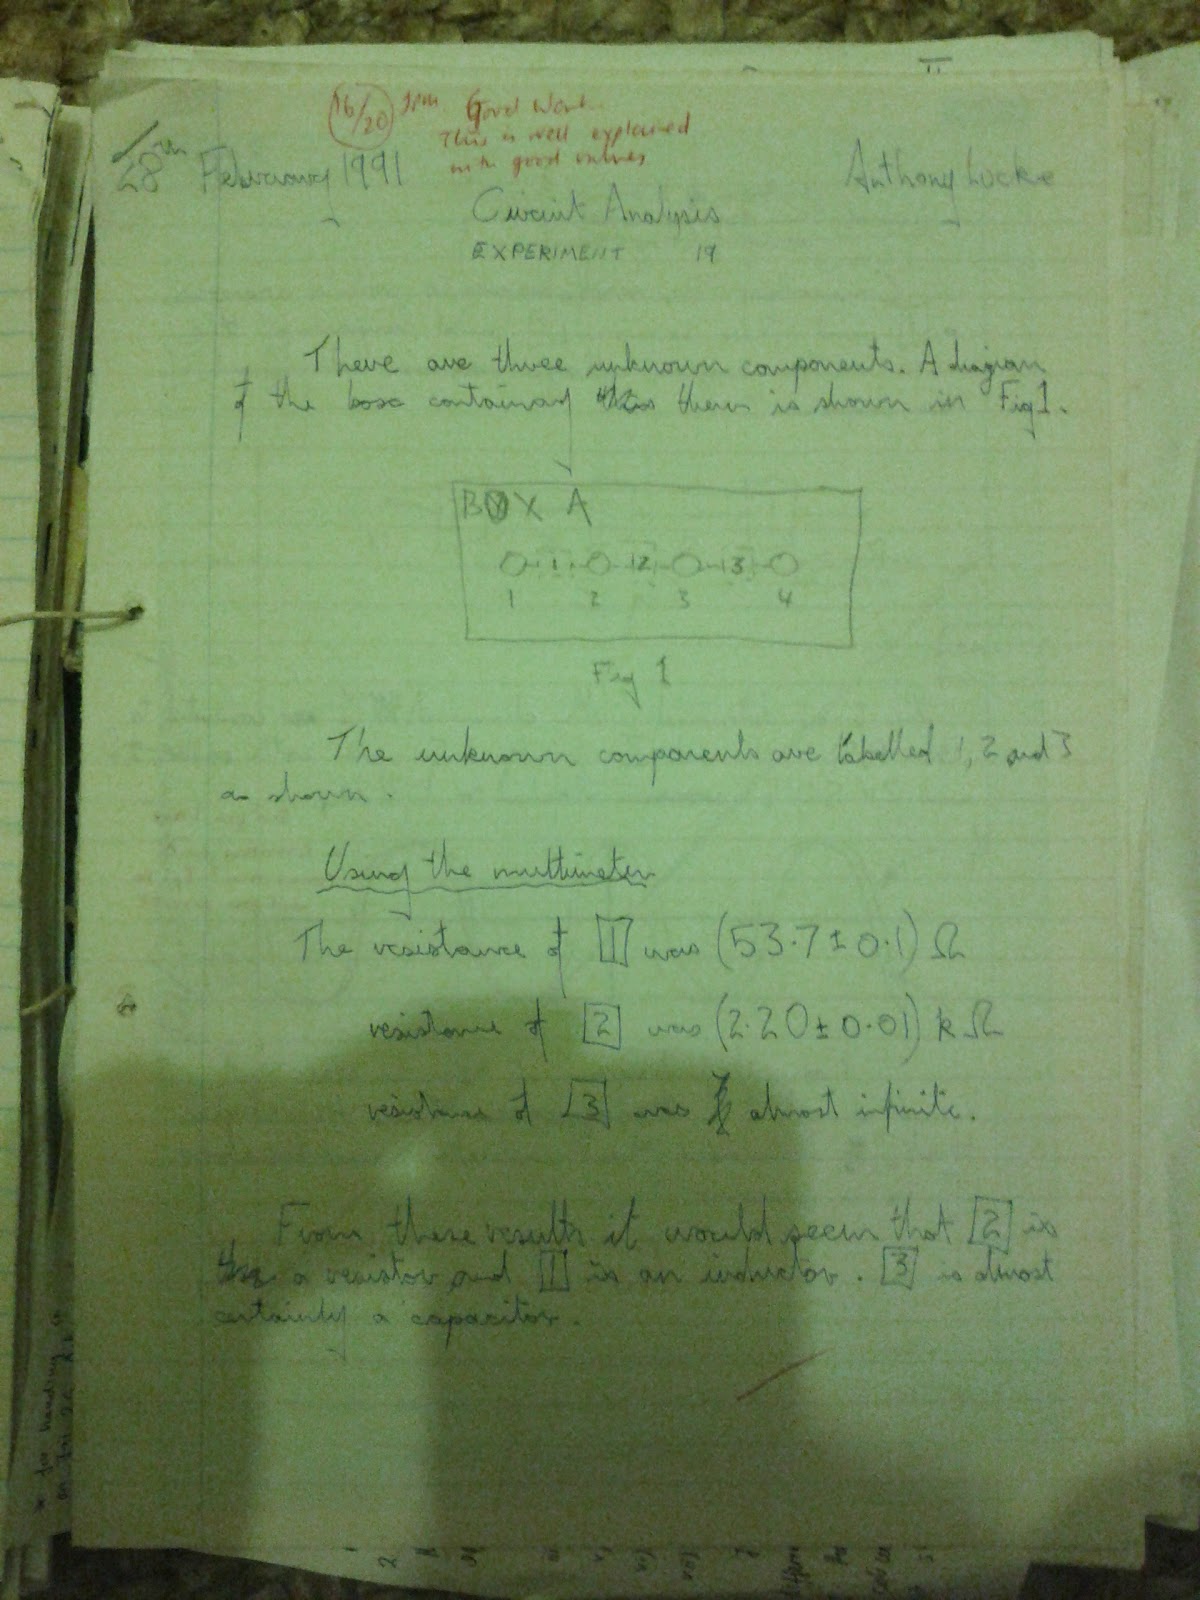 16/20 Good Work.
This is well explained
with good values
28th February 1991
Anthony Lucke
Circuit Analysis
EXPERIMENT 19
There are three unknown components. A diagram
of the box containing them is shown in Fig 1.
BOX A
1 2 3
1 2 3 4
Fig 1
The unknown components are labelled 1, 2 and 3
as shown.
Using the multimeter
The resistance of [1] was (53.7 ± 0.1) Ω
resistance of [2] was (2.20 ± 0.01) k Ω
resistance of [3] was almost infinite.
From these results it would seem that [2] is
a resistor and [1] is an inductor. [3] is almost
certainly a capacitor.